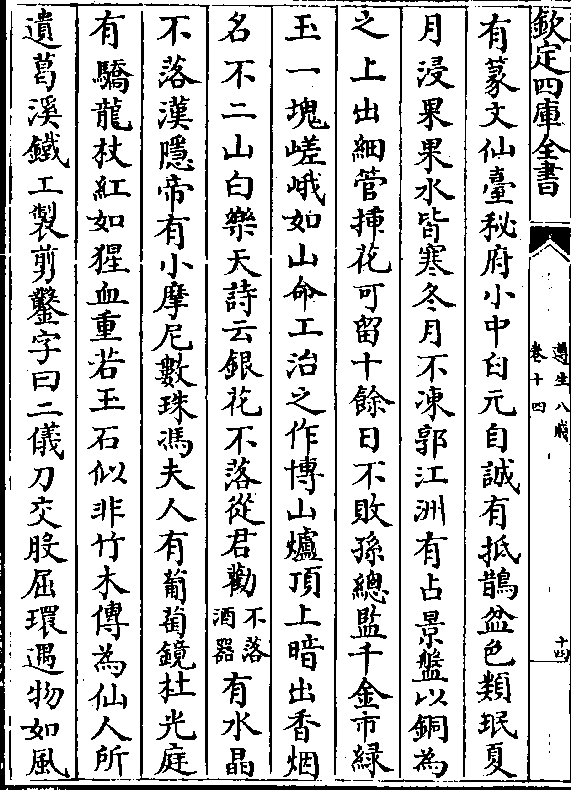 欽定四庫全書
遵生八牋
卷十四
十四
有篆文仙臺秘府小中臼元自誠有抵鵲盆色類珉夏
月浸果果水皆寒冬月不凍郭江洲有占景盤以銅為
之上出細管揷花可留十餘日不敗孫總監千金市緑
玉一塊嵯峨如山命工治之作博山爐頂上暗出香烟
名不二山白樂天詩云銀花不落從君勸不落酒器有水晶
不落漢隱帝有小摩尼數珠馮夫人有葡萄鏡杜光庭
有驕龍杖紅如猩血重若玉石似非竹木傳為仙人所
遺葛溪鐵工製剪鑿字曰二儀刀交股屈環遇物如風